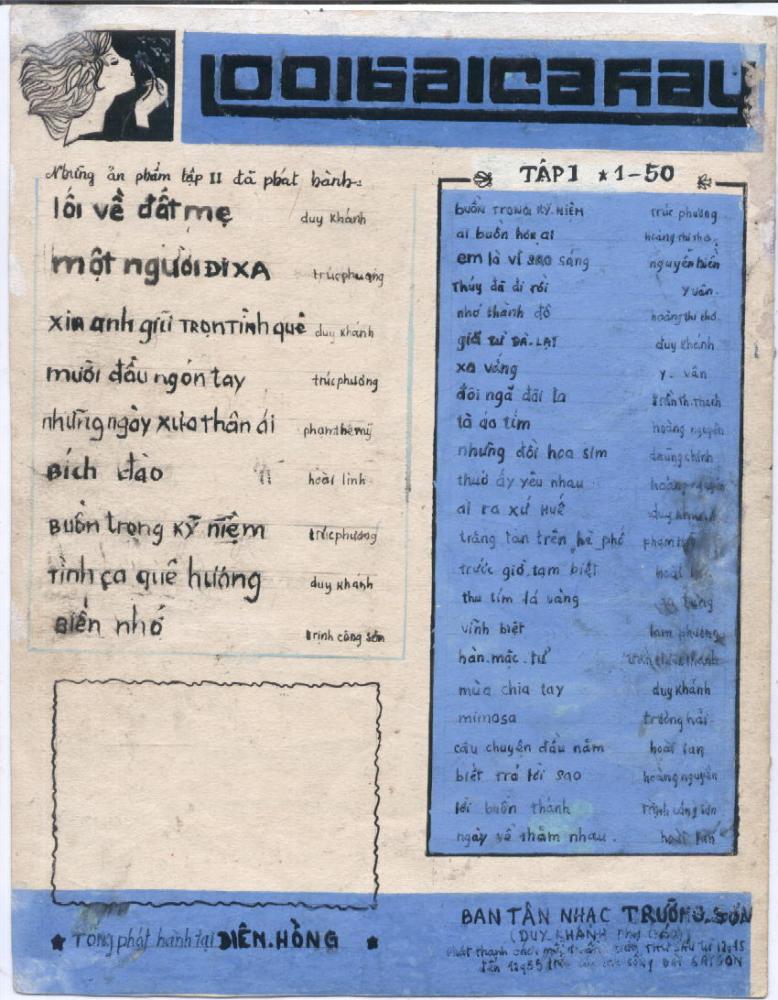 1001 bài ca hay
Những ấn phẩm tập II đã phát hành:
lối về đất mẹ duy khánh
một người ĐI XA trúc phương
xin anh giữ TRỌN TÌNH quê duy khánh
mười đầu ngón tay trúc phương
những ngày xưa thân ái phạm thế mỹ
BÍCH đào hoài linh
BUỒN trong KỶ niệm trúc phương
TÌNH ca quê hương duy khánh
BIỂN nhớ trịnh công sơn
★ Tổng phát hành tại DIÊN.HỒNG ★
TẬP I ★ 1-50
BUỒN TRONG KỶ NIỆM trúc phương
ai buồn hơn ai hoàng thi thơ
em là vì sao sáng nguyễn hiền
THÚY đã đi rồi y vân
nhớ thành đô hoàng thi thơ
giã TỪ ĐÀ.LẠT duy khánh
xa vắng y. vân
đôi ngã đôi ta trần th. thanh
tà áo tím hoàng nguyên
những đồi hoa sim dzũng chinh
thuở ấy yêu nhau hoàng nguyên
ai ra xứ HUẾ duy khánh
trăng tàn trên hè phố phạm
trước giờ tạm biệt hoài
thu tím lá vàng
vĩnh biệt lam phương
hàn.mặc.tử trần thiện thanh
mùa chia tay duy khánh
mimosa trường hải
câu chuyện đầu năm hoài lan
biết trả lời sao hoàng nguyên
lời buồn thánh trịnh công sơn
ngày về thăm nhau. hoài lan
BAN TÂN NHẠC TRƯỜNG.SƠN
(DUY KHÁNH phụ trách)
phát thanh mỗi tuần THỨ SÁU từ 12g15
đến 12g55 trên làn sóng ĐÀI SAIGON